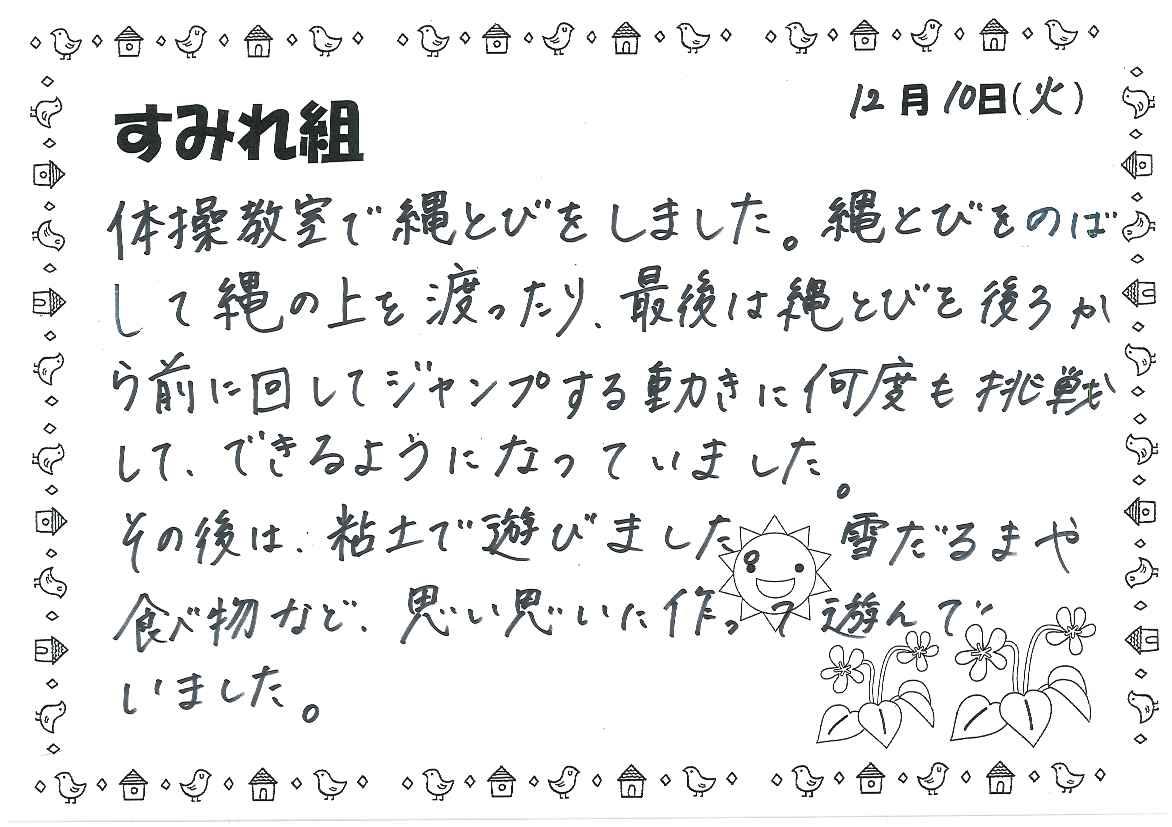 12月10日(火)
すみれ組
体操教室で縄とびをしました。縄とびをのば
して縄の上を渡ったり、最後は縄とびを後ろか
ら前に回してジャンプする動きに何度も挑戦
して、できるようになっていました。
その後は、粘土で遊びました。雪だるまや
食べ物など、思い思いに作って遊んで
いました。